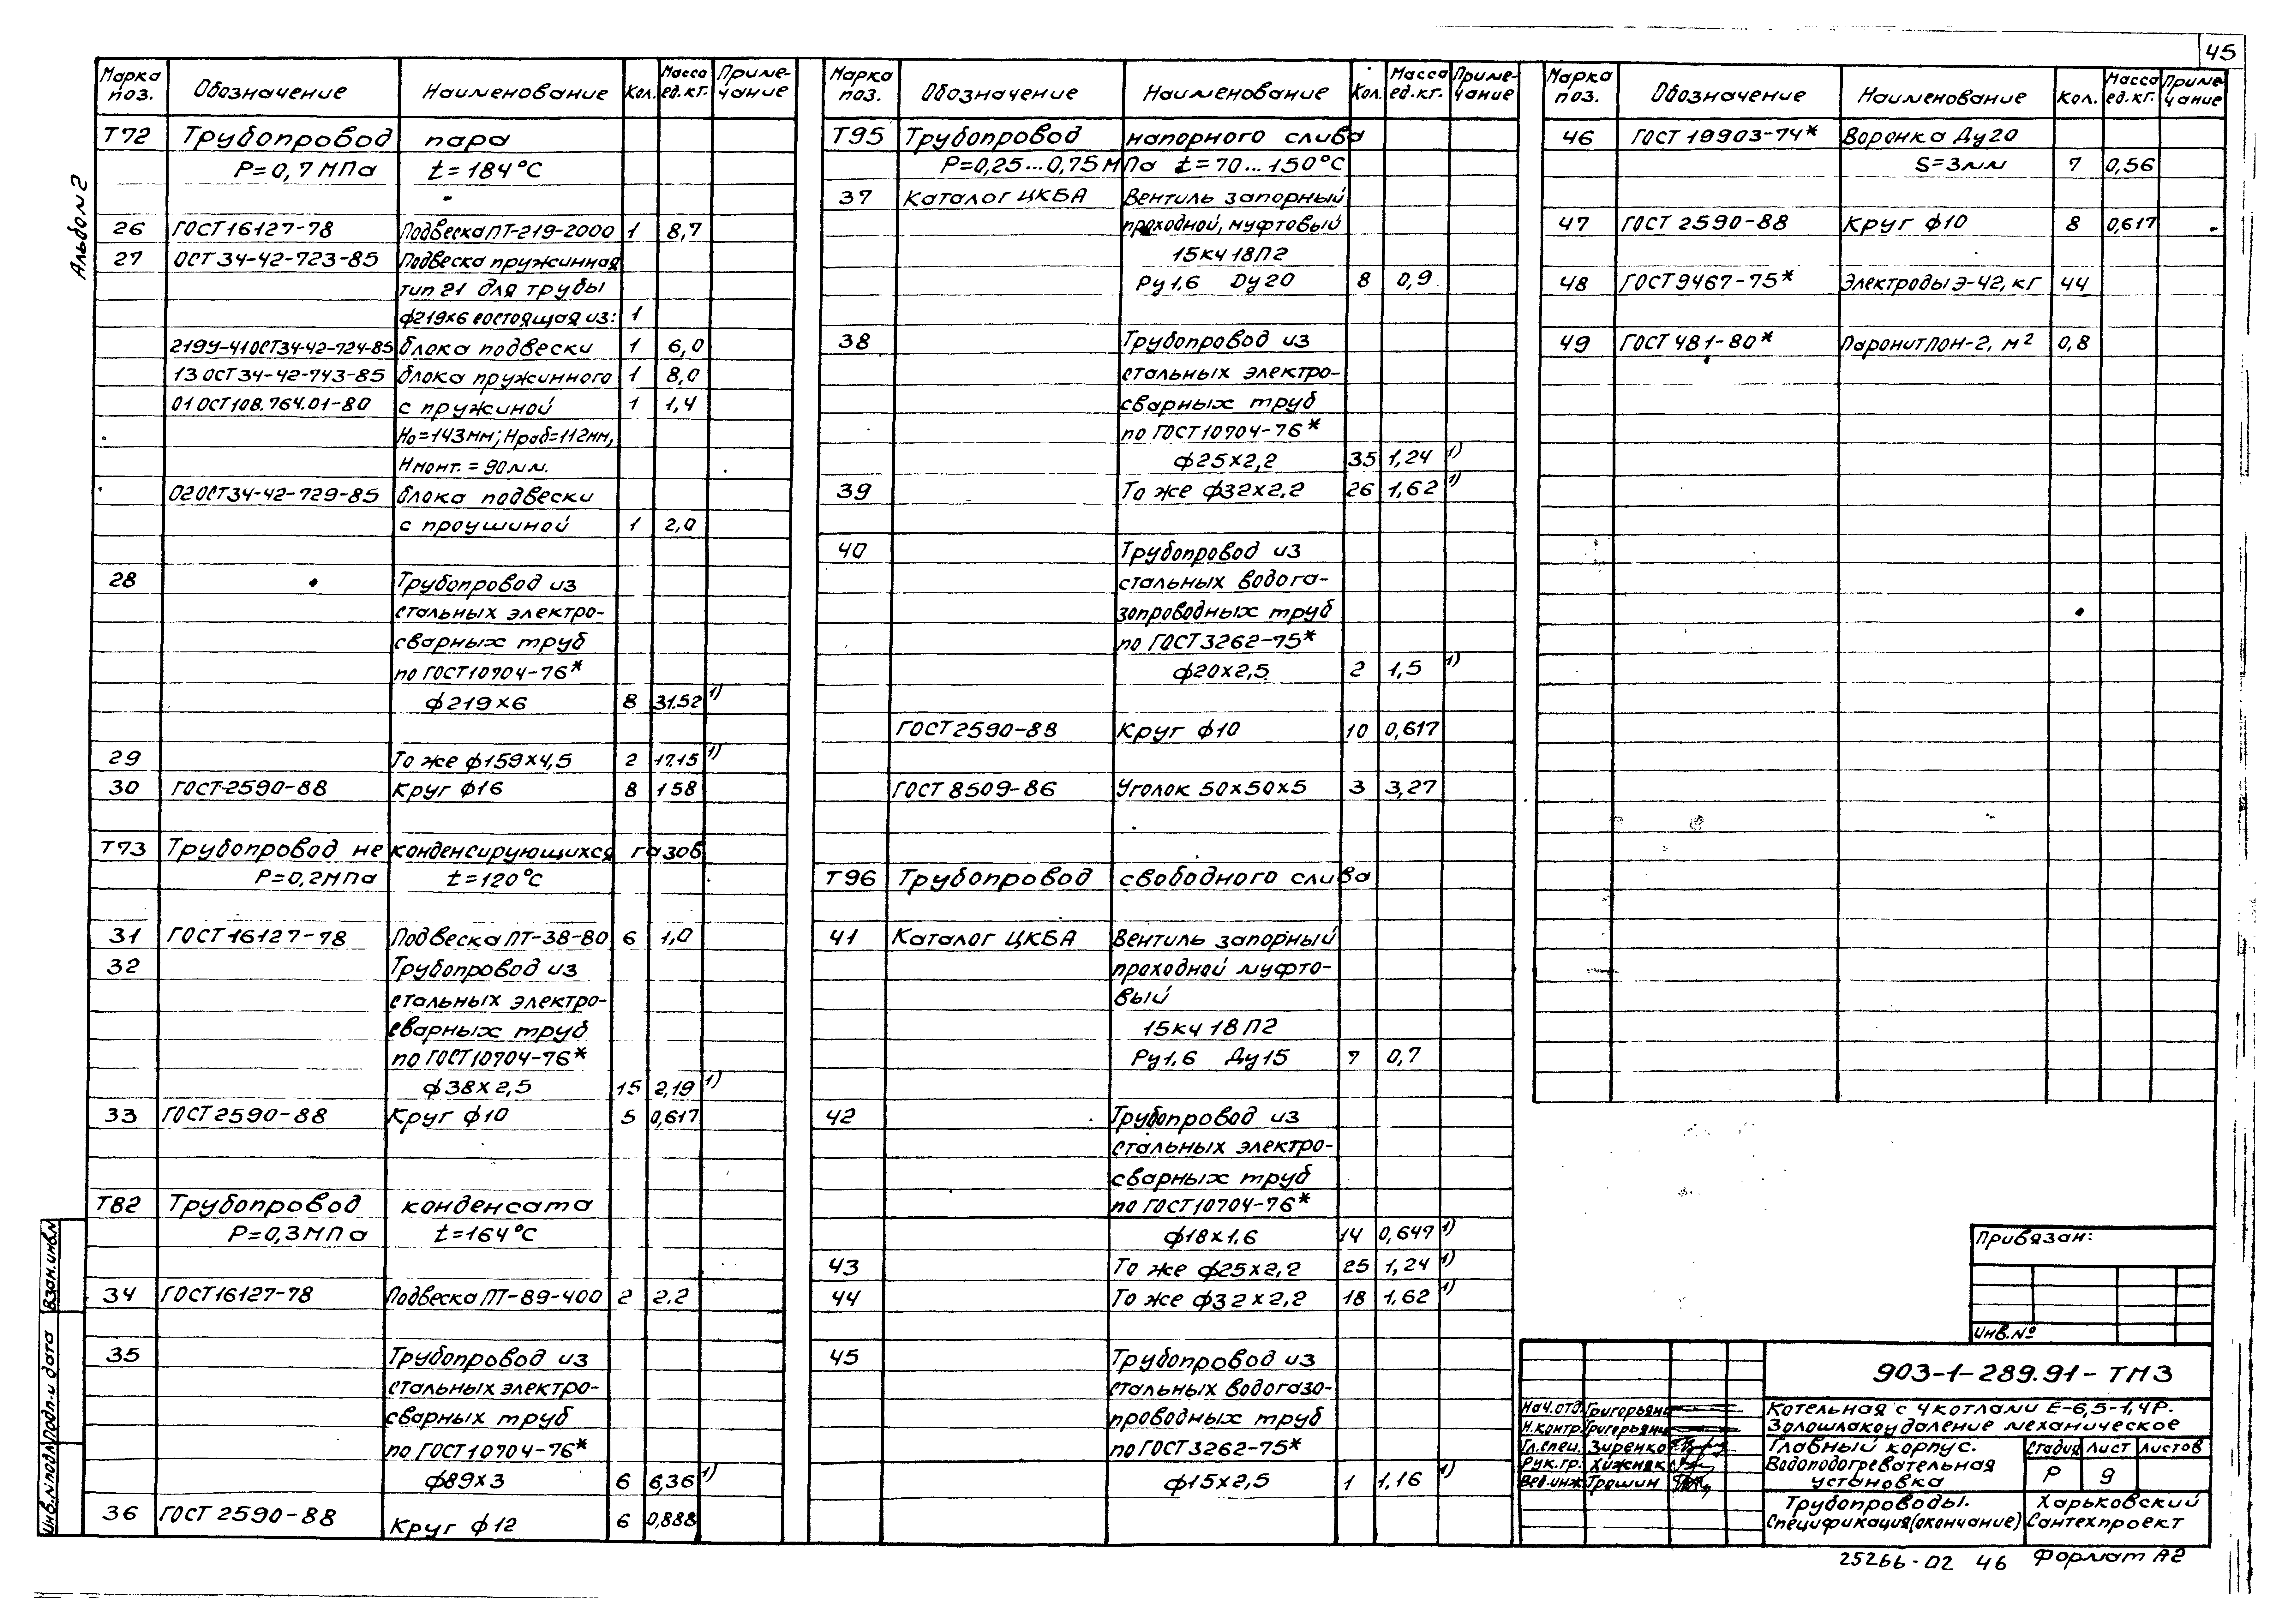 45
Альбом 2
Марка поз. Обозначение Наименование Кол. Масса ед.кг. Примечание
Т72 Трубопровод пара
Р=0,7МПа t=184°С
26 ГОСТ16127-78 Подвеска ПТ-219-2000 1 8,7
27 ОСТ34-42-723-85 Подвеска пружинная
тип 21 для трубы
ф219х6 состоящая из: 1
219У-41ОСТ34-42-724-85 блока подвески 1 6,0
13 ОСТ34-42-743-85 блока пружинного 1 8,0
01 ОСТ108.764.01-80 с пружиной 1 1,4
Но=143мм; Нраб=112мм,
Нмонт.=90мм.
02ОСТ34-42-729-85 блока подвески
с проушиной 1 2,0
28 Трубопровод из
стальных электро-
сварных труб
по ГОСТ10704-76*
ф219х6 8 31.52 1)
29 То же ф159х4,5 2 17.15 1)
30 ГОСТ-2590-88 Круг ф16 8 1 58
Т73 Трубопровод не конденсирующихся газов
Р=0,2МПа t=120°С
31 ГОСТ16127-78 Подвеска ПТ-38-80 6 1,0
32 Трубопровод из
стальных электро-
сварных труб
по ГОСТ10704-76*
ф38х2,5 15 2,19 1)
33 ГОСТ2590-88 Круг ф10 5 0,617
Т82 Трубопровод конденсата
Р=0,3МПа t=164°С
34 ГОСТ16127-78 Подвеска ПТ-89-400 2 2.2
35 Трубопровод из
стальных электро-
сварных труб
по ГОСТ10704-76*
ф89х3 6 6,36 1)
36 ГОСТ 2590-88 Круг ф12 6 0,888
Марка поз. Обозначение Наименование Кол. Масса ед.кг. Примечание
Т95 Трубопровод напорного слива
Р=0,25...0,75МПа t=70...150°С
37 Каталог ЦКБА Вентиль запорный
проходной, муфтовый
15кч18П2
Ру1,6 Ду20 8 0,9
38 Трубопровод из
стальных электро-
сварных труб
по ГОСТ10704-76*
ф25х2,2 35 1,24 1)
39 То же ф32х2,2 26 1,62 1)
40 Трубопровод из
стальных водога-
зопроводных труб
по ГОСТ3262-75*
ф20х2,5 2 1,5 1)
ГОСТ2590-88 Круг ф10 10 0,617
ГОСТ 8509-86 Уголок 50х50х5 3 3,27
Т96 Трубопровод свободного слива
41 Каталог ЦКБА Вентиль запорный
проходной муфто-
вый
15кч18П2
Ру1,6 Ду15 7 0,7
42 Трубопровод из
стальных электро-
сварных труб
по ГОСТ10704-76*
ф18х1.6 14 0,647 1)
43 То же ф25х2,2 25 1,24 1)
44 То же ф32х2,2 18 1,62 1)
45 Трубопровод из
стальных водогазо-
проводных труб
по ГОСТ3262-75*
ф15х2,5 1 1,16 1)
Марка поз. Обозначение Наименование Кол. Масса ед.кг. Примечание
46 ГОСТ 19903-74* Воронка Ду20
S=3мм 7 0,56
47 ГОСТ 2590-88 Круг ф10 8 0,617
48 ГОСТ9467-75* Электроды Э-42, кг 44
49 ГОСТ481-80* Паронит ПОН-2, м2 0,8
Привязан:
Инв.№
903-1-289.91-ТМ3
Котельная с 4 котлами Е-6,5-1,4Р.
Золошлакоудаление механическое
Нач.отд. Григорьянц
Н.контр. Григорьянц
Гл.спец. Зиренко
Рук.гр. Хижняк
Вед.инж. Трошин
Главный корпус.
Водоподогревательная
установка
Стадия Лист Листов
Р 9
Трубопроводы.
Спецификация (окончание)
Харьковский
Сантехпроект
Инв.№подл. Подп.и дата Взам.инв.№
25266-02 46 Формат А2